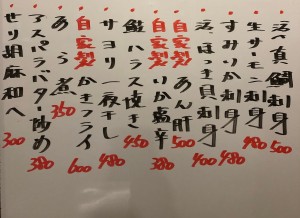 活〆真鯛刺身 500
生サモン刺身 480
すみいか刺身 480
活ほっき貝刺身 400
自家製あん肝 500
自家製いか塩辛 380
鮭ハラス焼き 450
サヨリ一夜干し 480
自家製かきフライ 600
あら煮 350
アスパラバター炒め 380
せり胡麻和へ 300